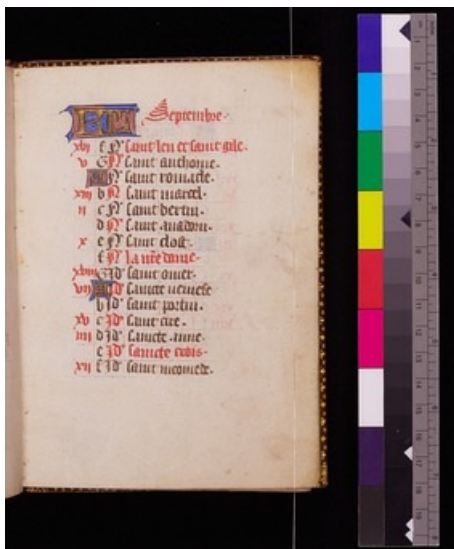 KL Septembre.
xvi f N saint leu et saint gile.
v G N saint anthoine.
A N saint romacle.
xiii b N saint marcel.
ii c N saint bertin.
d N saint
x e N saint clost.
f N la nre dame.
xviii G Id saint omer.
vii A Id saincte
b Id saint
xv c Id saint
iiii d Id saincte
e Id saincte crois.
xii f Id saint nicomede.